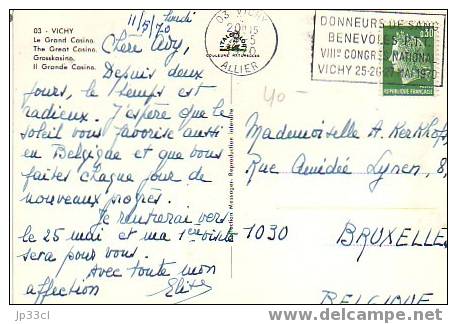 03 - VICHY
Le Grand Casino.
The Great Casino.
Grosskasino.
Il Grande Casino.
lundi
11/5/70
Chère Ady,
Depuis deux
jours, le temps est
radieux. J'espère que le
soleil vous favorise aussi
en Belgique et que vous
faites chaque jour de
nouveaux progrès.
Je rentrerai vers
le 25 mai et ma 1ère visite
sera pour vous.
Avec toute mon
affection Elise
COULEURS NATURELLES
Reproduction interdite
03 VICHY
ALLIER
DONNEURS DE SANG
BENEVOLES P.T.T.
VIIIe CONGRES NATIONAL
VICHY 25-26-27 MAI 1970
0,30
REPUBLIQUE FRANCAISE
40-
Mademoiselle A. Kerkhofs
Rue Amédée Lynen, 8,
1030 BRUXELLES
BELGIQUE
jp33cl
© delcampe.net